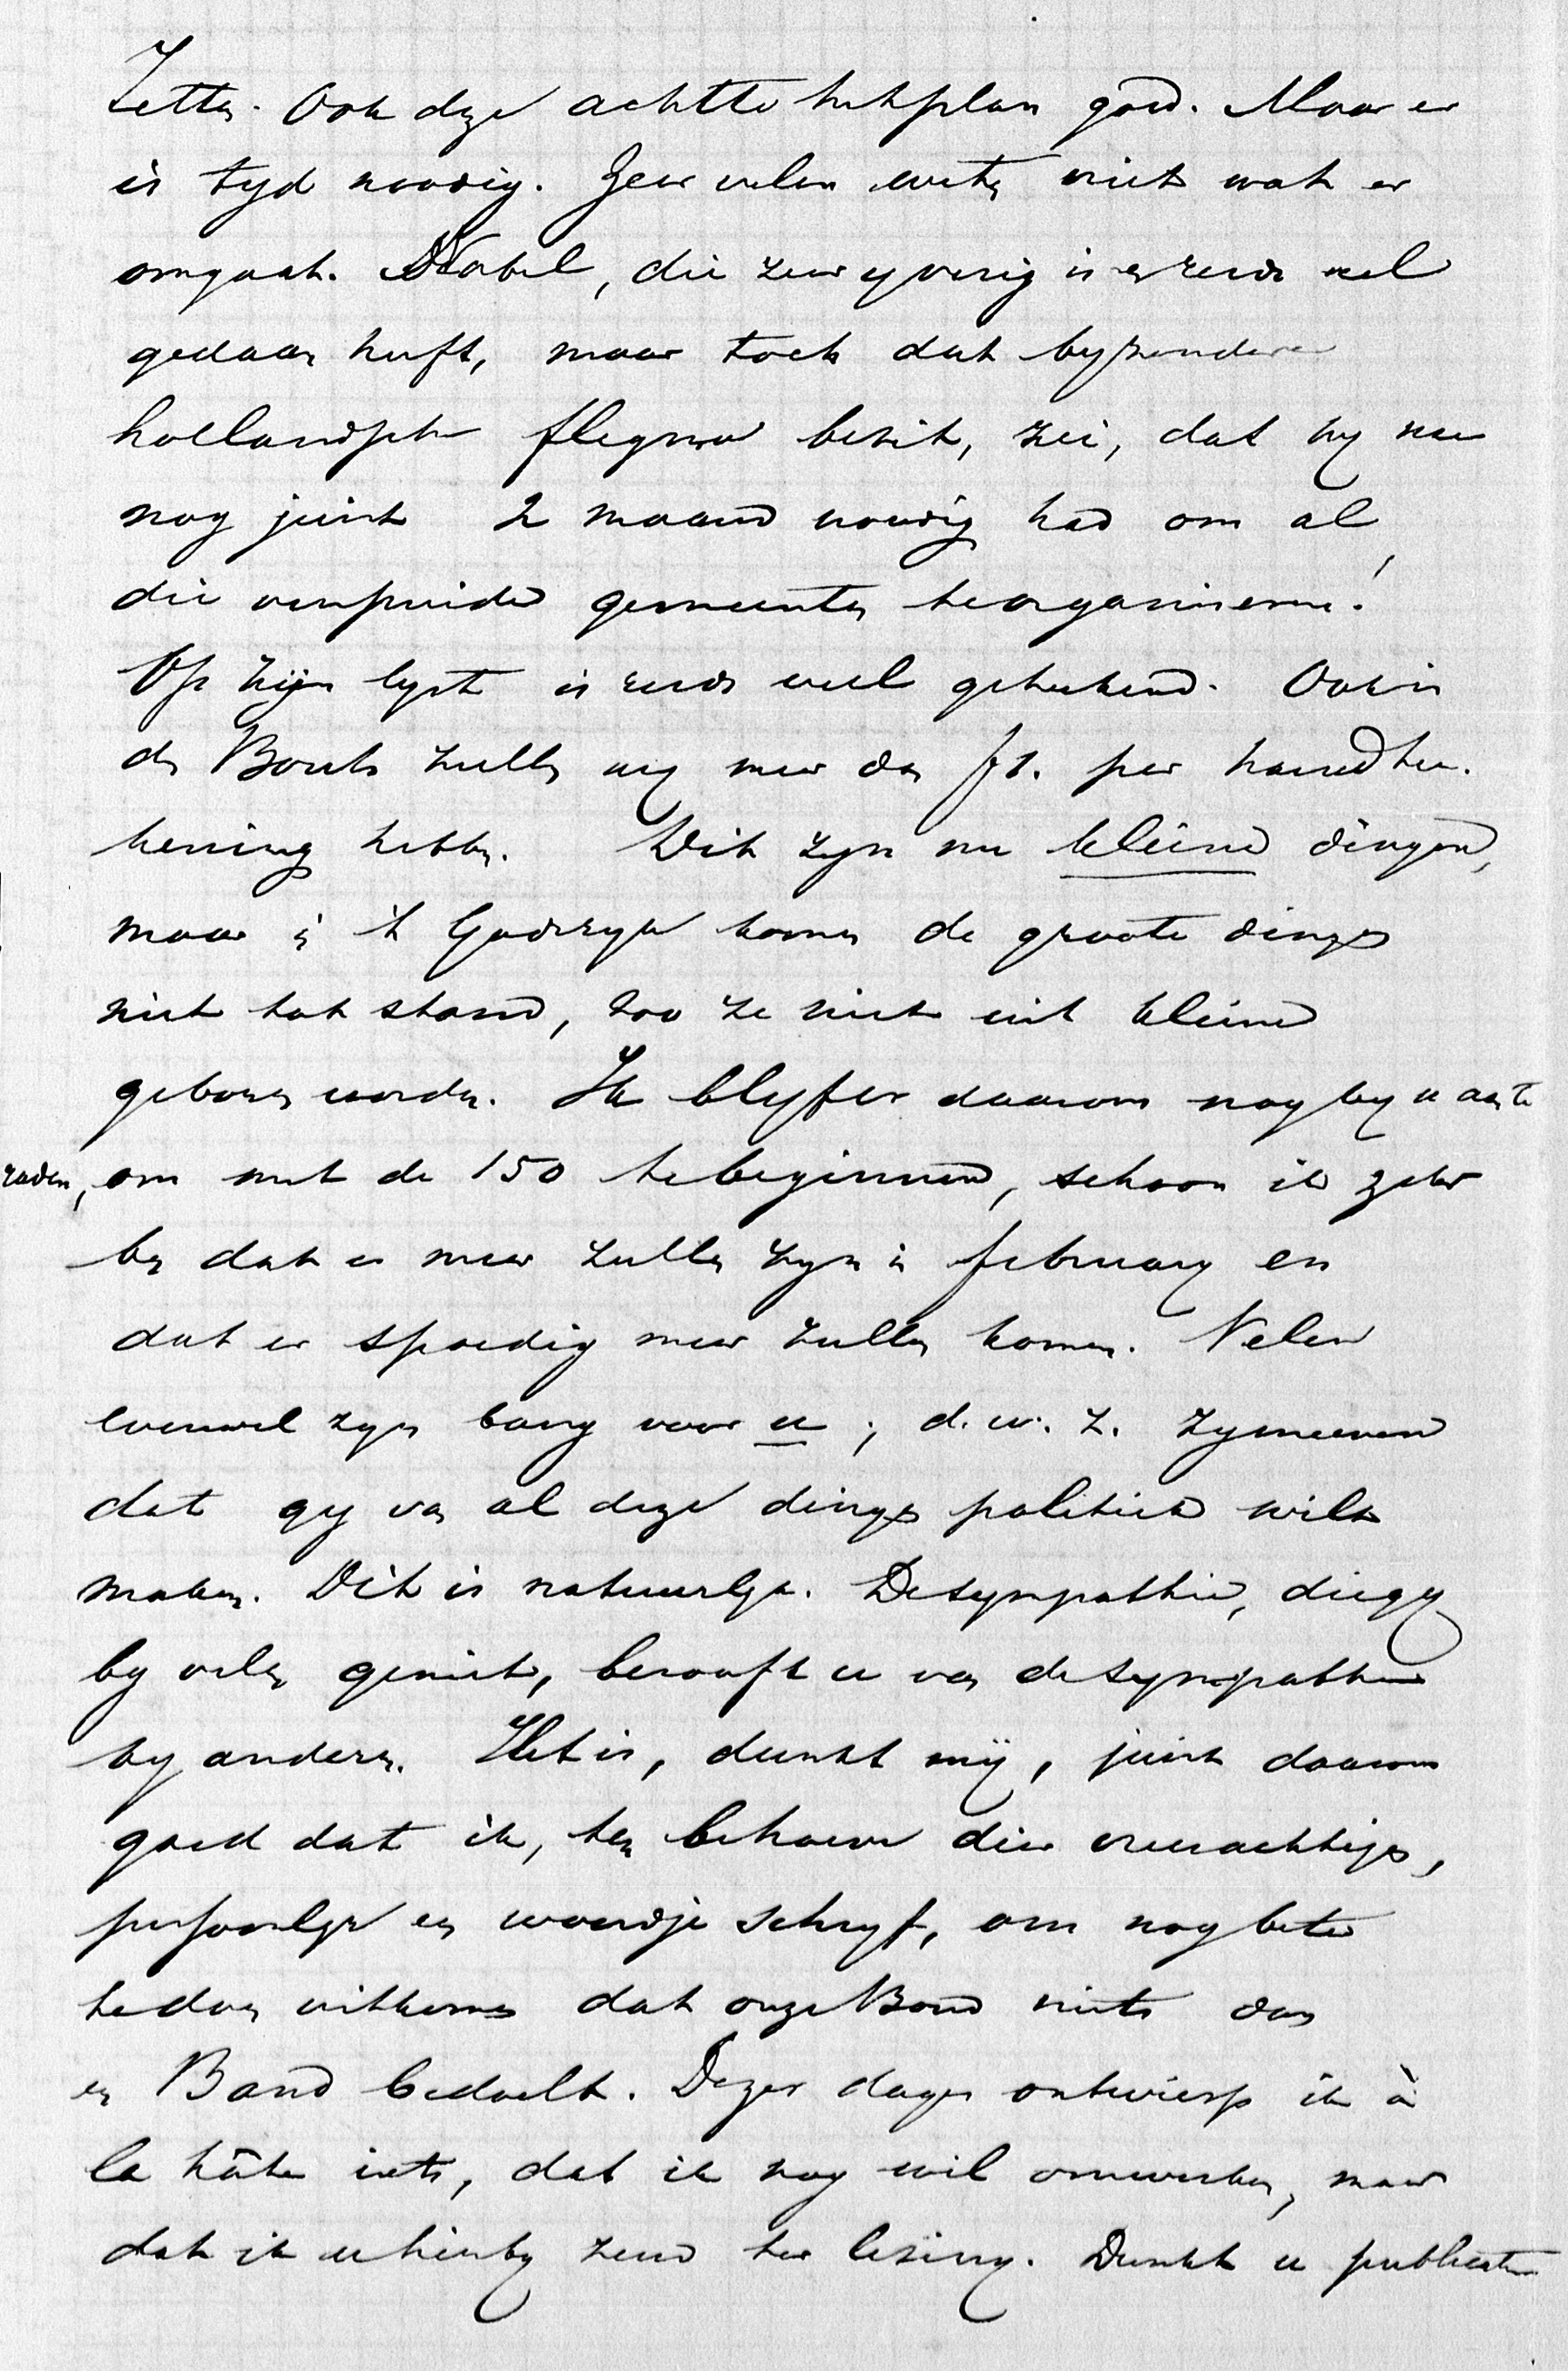 zetten. Ook deze achtte het plan goed. Maar er
is tyd noodig. Zeer velen weten niet wat er
omgaat. Nabel, die zeer yverig is en reeds veel
gedaan heeft, maar toch dat byzondere
hollandsche flegma bezit, zei, dat hy nu
nog juist 2 maand noodig had om al
die verspreide gemeenten te organiseren!
Op zijn lyst is reeds veel geteekend. Ook in
den Bouts zullen wy meer dan f1. per handtee-
kening hebben. Dit zyn nu kleine dingen,
maar in 't Godsryk komen de groote dingen
niet tot stand, zoo ze niet uit kleine
geboren worden. Ik blyf er daarom nog by u aan te
raden, om met de 150 te beginnen, schoon ik zeker
ben dat er meer zullen zyn in february en
dat er spoedig meer zullen komen. Velen
evenwel zyn bang voor u; d.w.z. zy meenen
dat gy van al deze dingen politiek wilt
maken. Dit is natuurlyk. De sympathie, die gy
by velen geniet, berooft u van de sympathie
by anderen. Het is, dunkt mij, juist daarom
goed dat ik, ten behoeve dier vreesachtigen,
persoonlyk een woordje schryf, om nog beter
te doen uitkomen dat onze Bond niets dan
een Band bedoelt. Dezer dagen ontwierp ik à
la hâte iets, dat ik nog wil omwerken, maar
dat ik u hierby zend ter lezing. Dunkt u publicatie